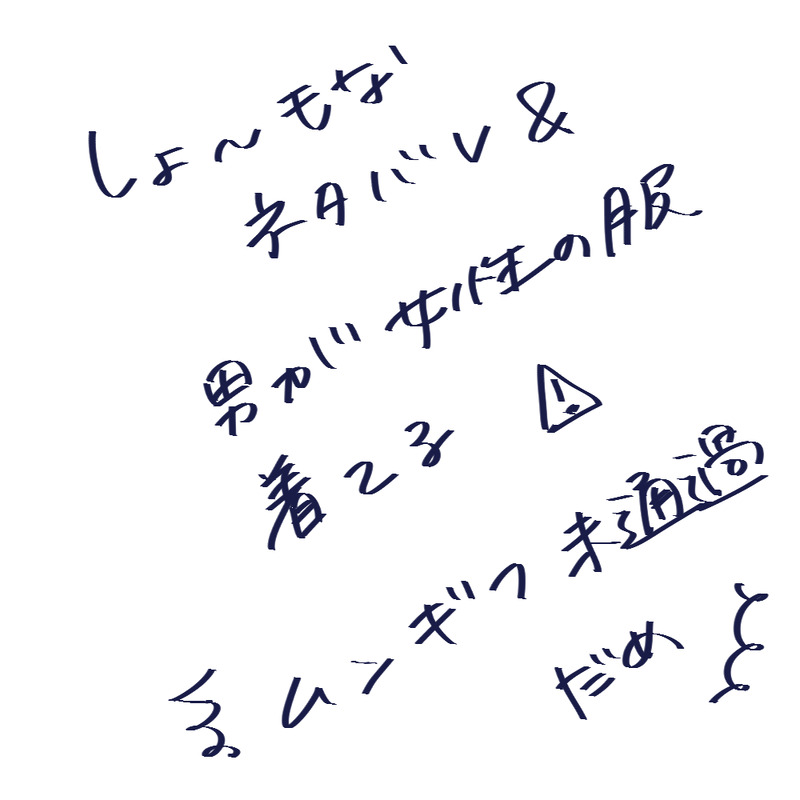 しょ〜もな
ネタバレ&
男が女性の服
着てる ⚠
ムンギフ未通過
だめ